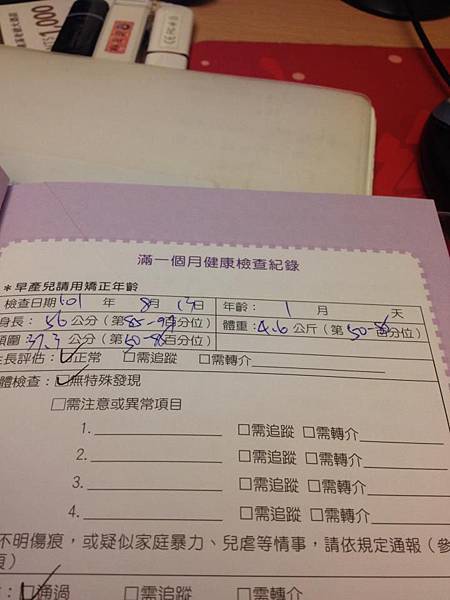 $1,000
滿一個月健康檢查紀錄
*早產兒請用矯正年齡
檢查日期:101 年 8月 13日 年齡: 1 月 天
身長: 56 公分(第85-97百分位) 體重:4.6 公斤(第50-85百分位)
頭圍 37.3 公分(第50-85百分位)
生長評估:☑正常 □需追蹤 □需轉介
體檢查:☑無特殊發現
□需注意或異常項目
1. □需追蹤 □需轉介
2. □需追蹤 □需轉介
3. □需追蹤 □需轉介
4. □需追蹤 □需轉介
不明傷痕,或疑似家庭暴力、兒虐等情事,請依規定通報(參
頁)
:☑通過 □需追蹤 □需轉介